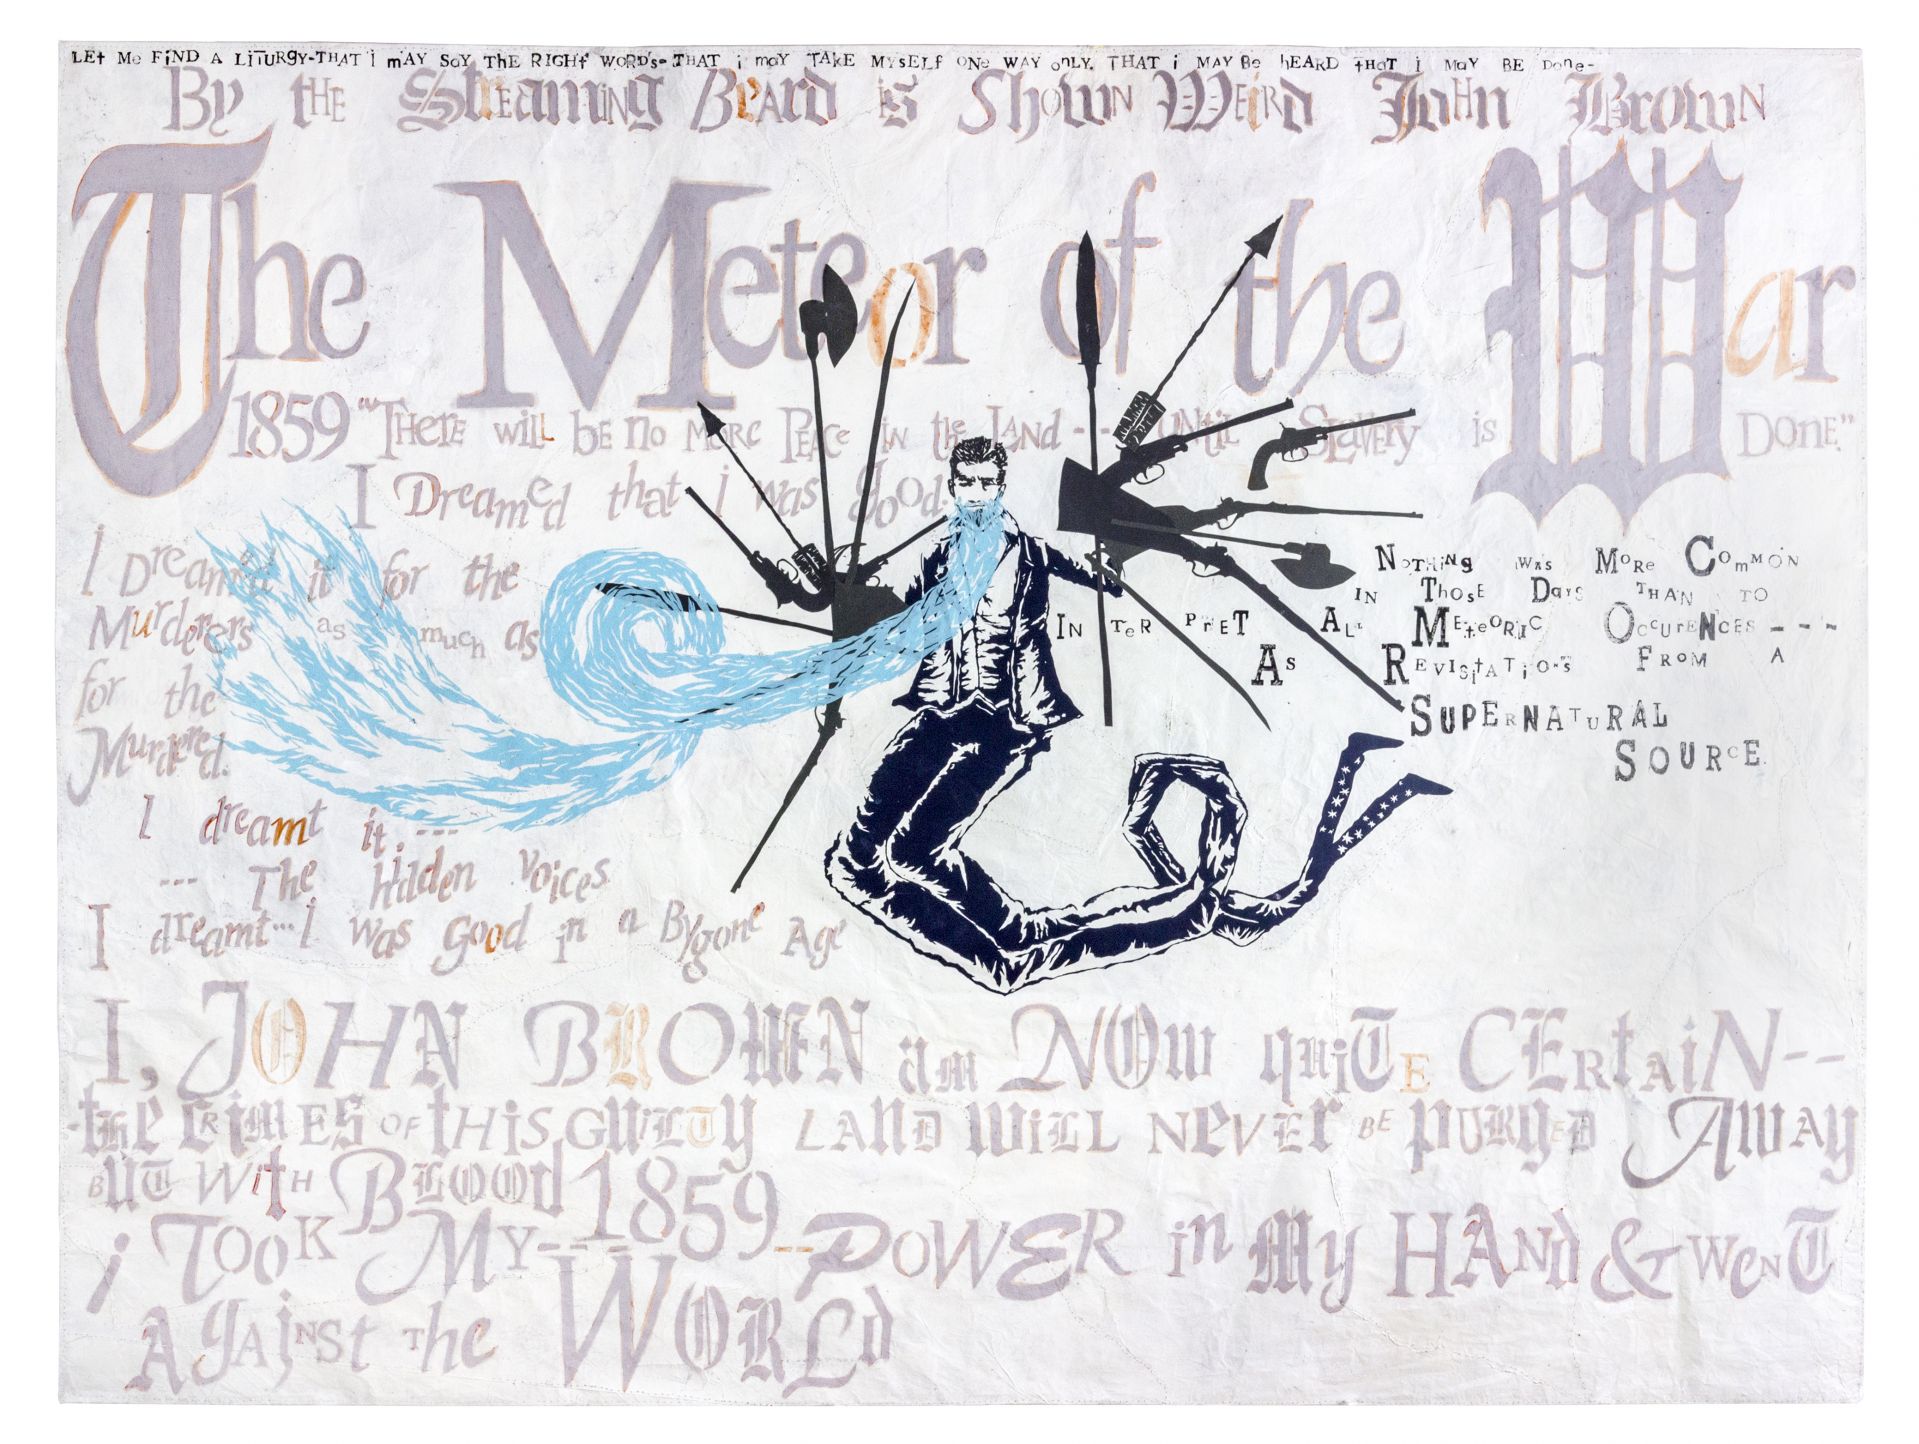 LEt Me FiND A LiTURgy-THAT i mAY SaY ThE RIGHt WORD's-THAT i maY TAKE MYSELf ONe WAY onLY. THAT i MAY Be hEARD tHaT i MaY BE Done-
By tHE StrEaming BEArd is ShowN WEird JoHn BrowN
The Meteor of the War
1859 "THerE will bE no MoRe PEAce iN the LANd --- UNtiL SLAVEry is DonE."
I Dreamed that i was good.
I Dream'd it for the
Murderers as much as
for the
Murdered.
I dreamt it.---
--- The hidden voices
I dreamt...I was good in a Bygone Age
NoTHiNg WAS MoRe CommON
IN ThosE DaYS THAN TO
INTeRPrET ALL MEteORIC OCCurENCES ----
As REVISitATiONS FRoM A
SUPERNATURAL
SOURcE.
I, JOHN BROWN am NOW quiTE CERtAiN--
-tHE CRiMES OF tHiS GUiLTY LANd WiLL NEVER BE PURgED AWAY
BUT WitH BLOOd 1859
i TOOK MY----POWER in MY HANd & WeNT
AgAiNSt THe WORLd